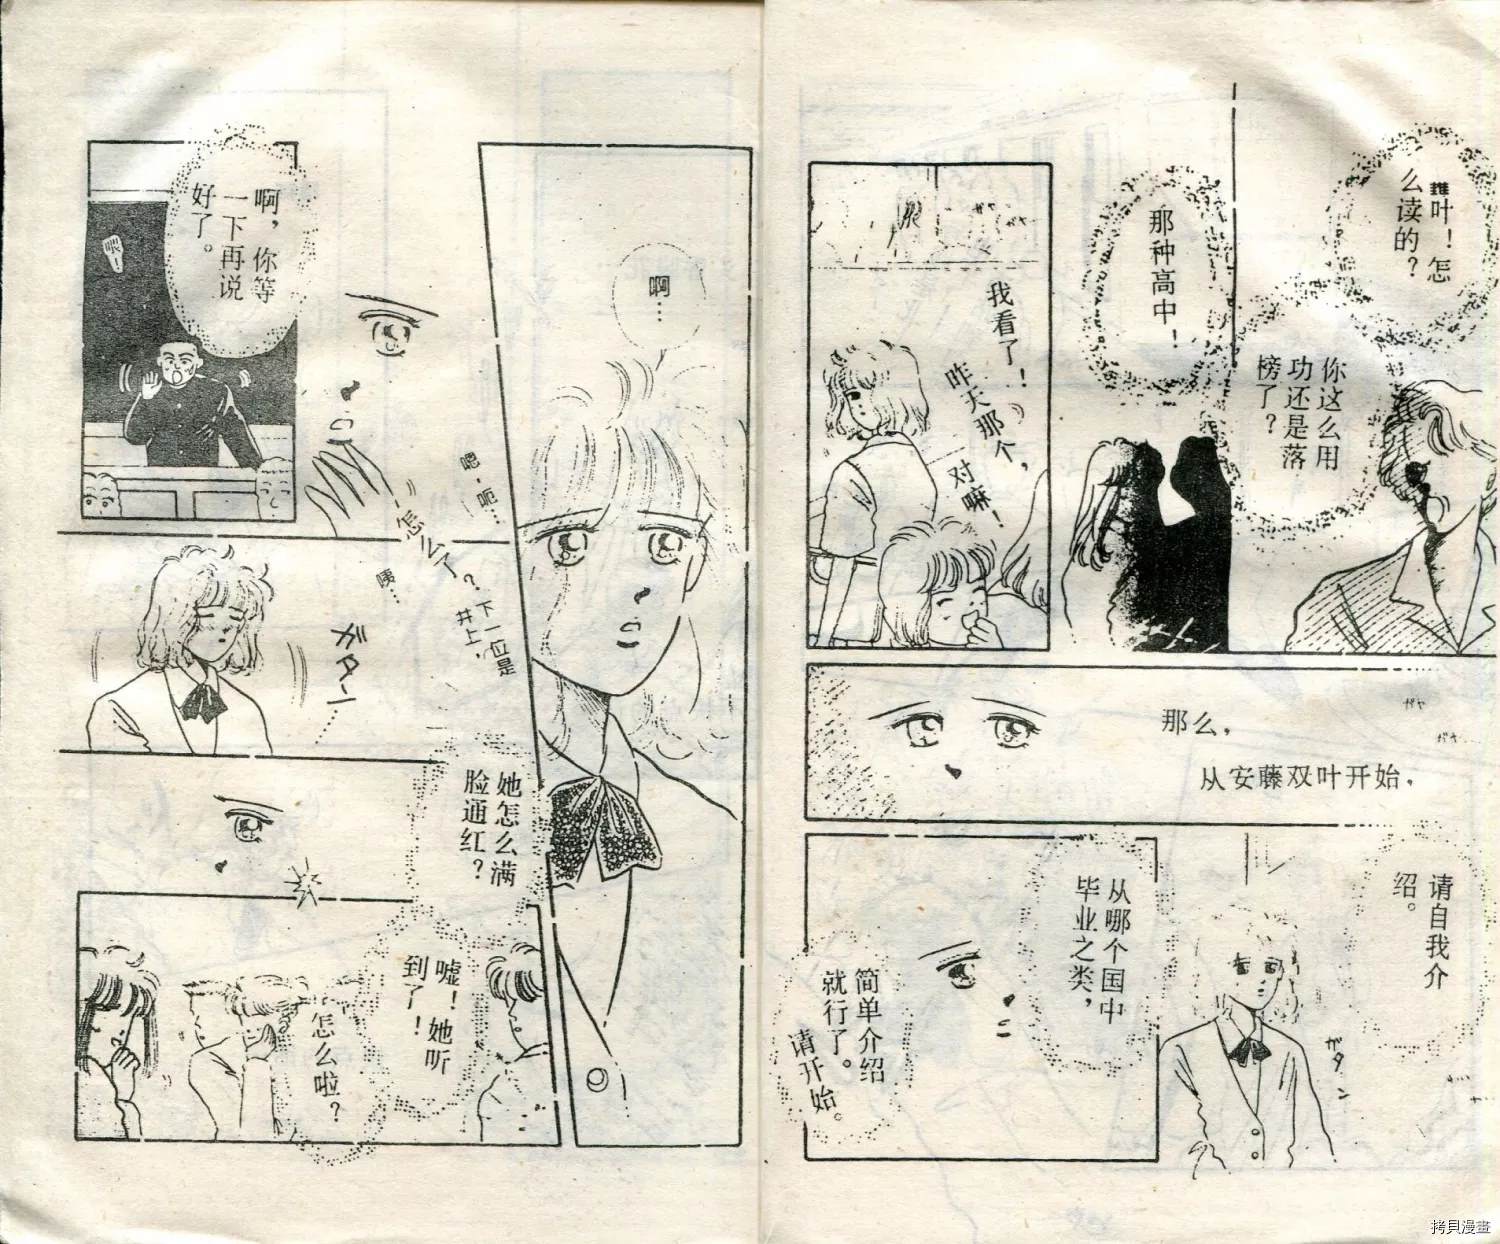 叶！怎
么读的？
你这么用
功还是落
榜了？
那种高中！
我看了！
昨天那个，
对嘛！
ガヤ
ガヤ…
那么，
从安藤双叶开始，
请自我介
绍。
ガタン
从哪个国中
毕业之类，
简单介绍
就行了。
请开始。
啊…
啊，你等
一下再说
好了。
嗯·呃…
…怎么了？
咦…
下一位是
井上，
ガタン…
她怎么满
脸通红？
嘘！她听
到了！
怎么啦？
拷貝漫畫